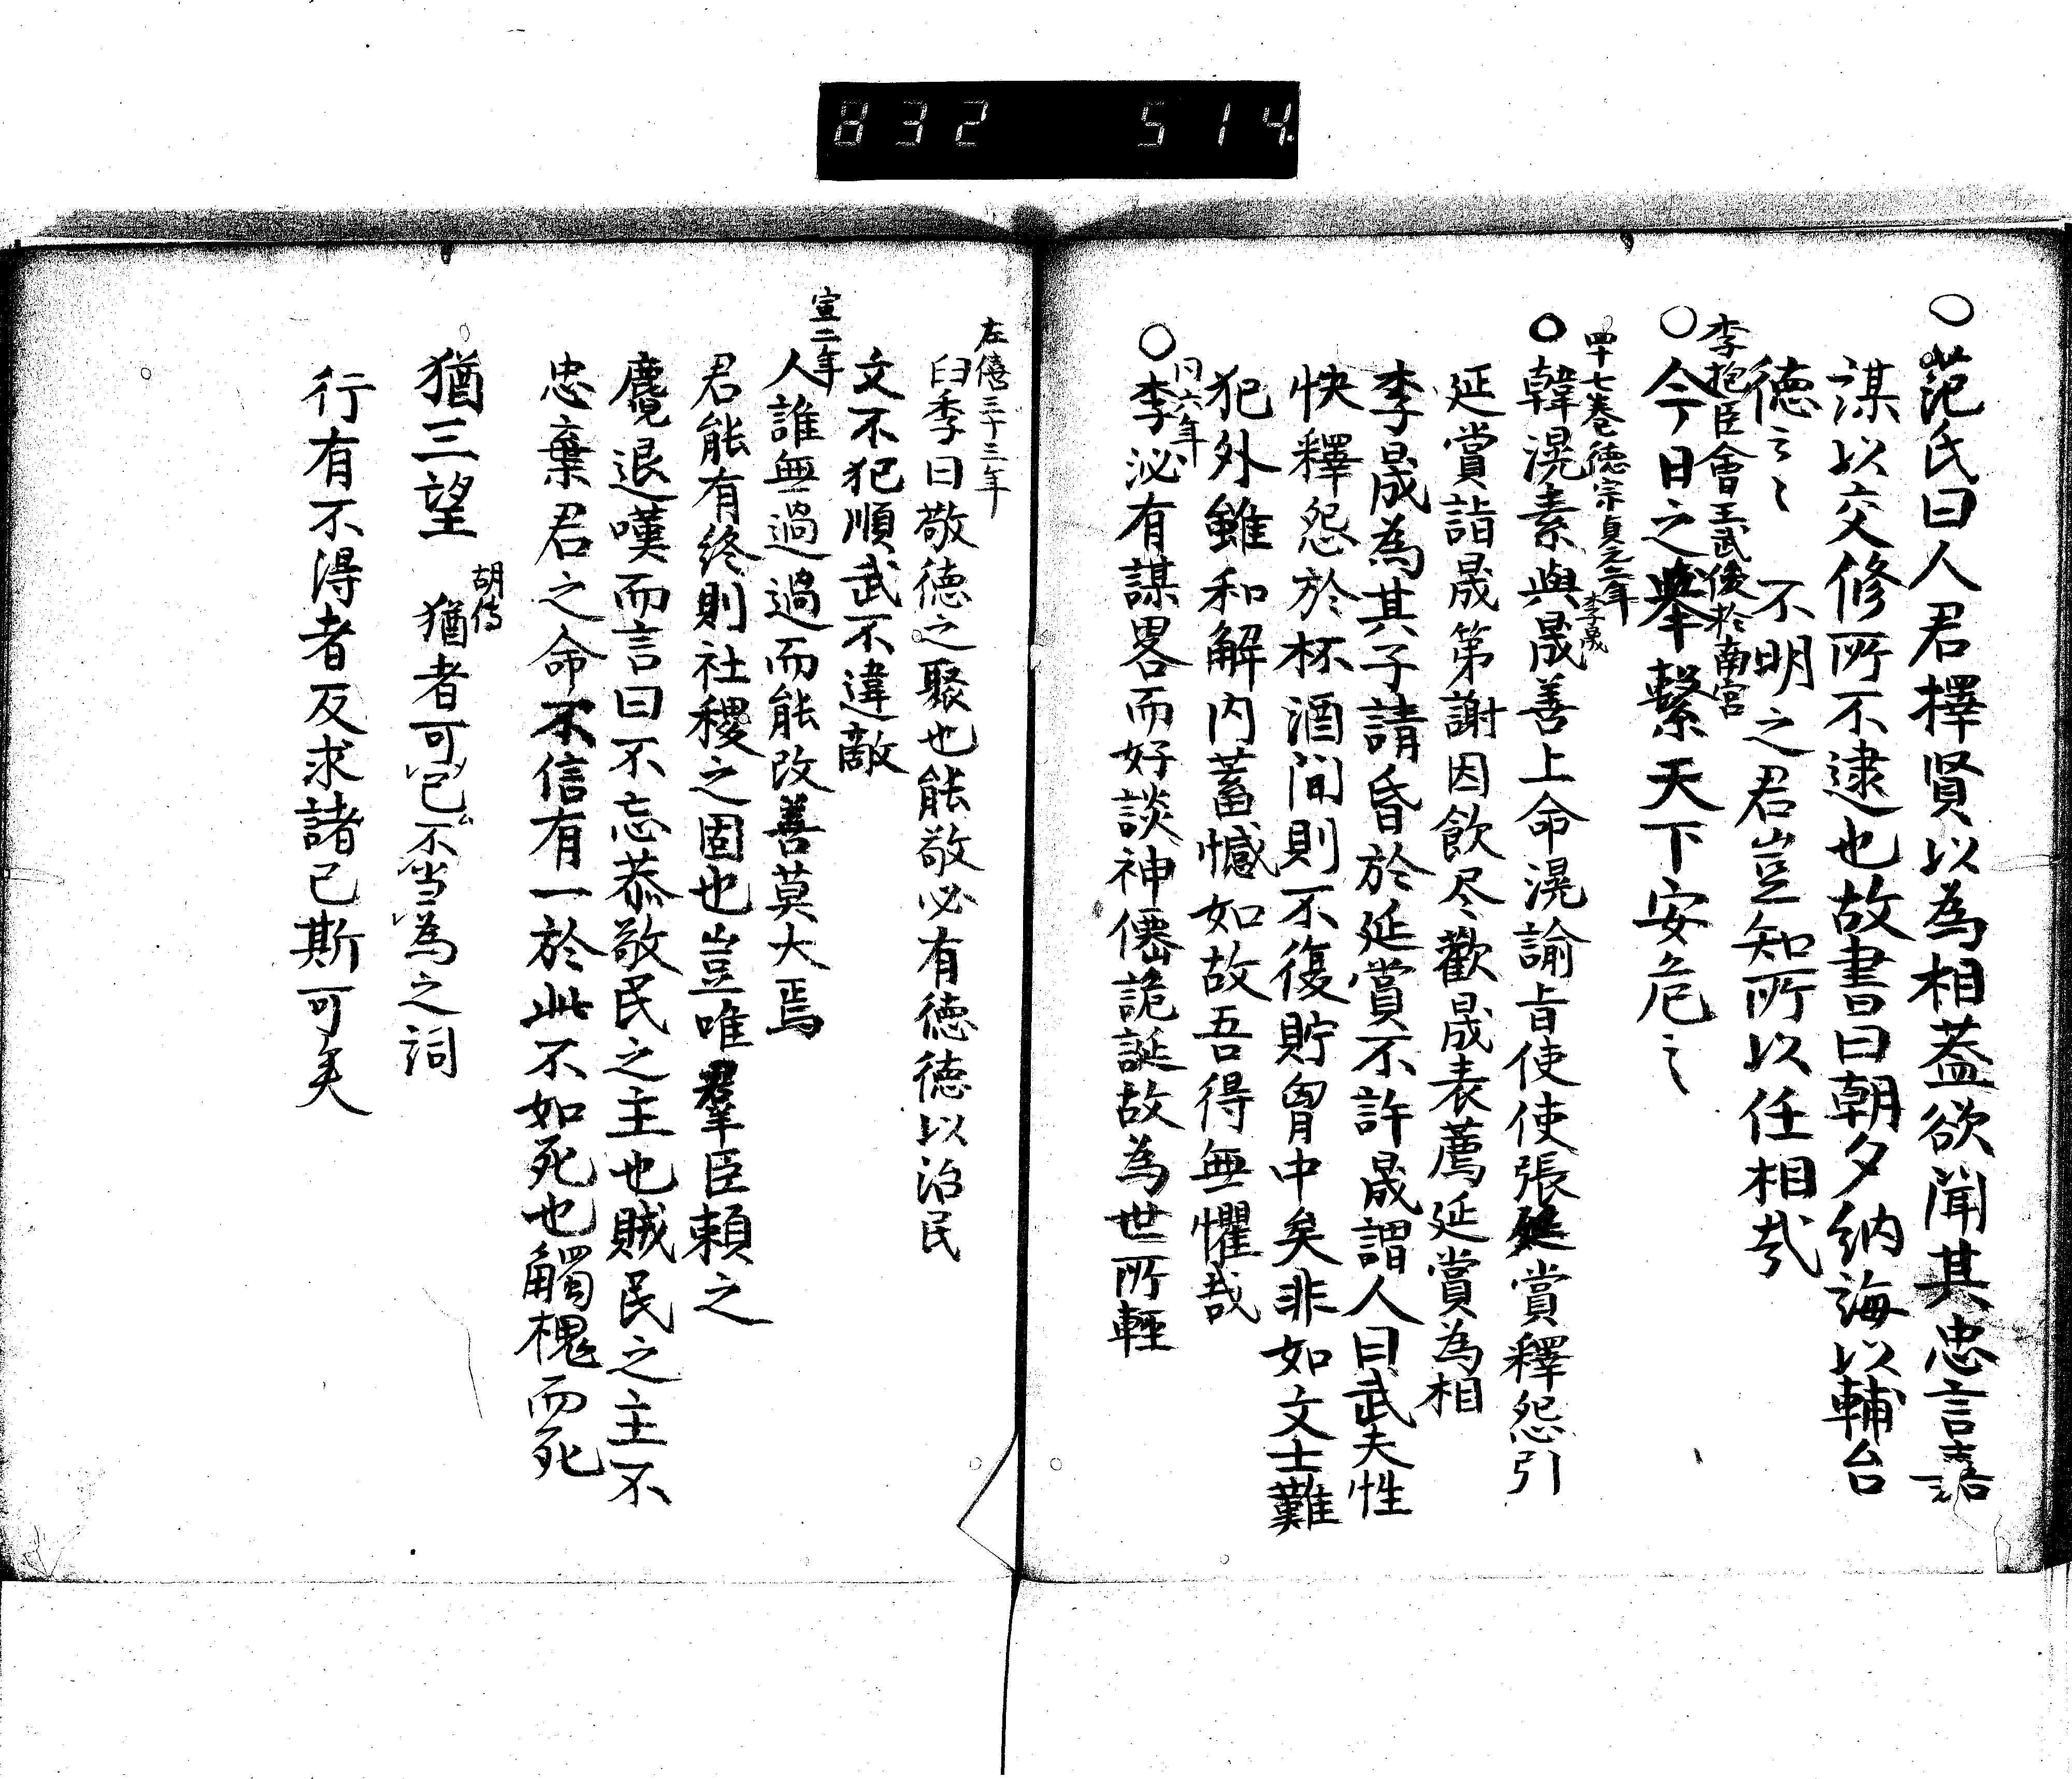 832 514
○范氏曰人君擇賢以為相蓋欲聞其忠言嘉
謀以交修所不逮也故書曰朝夕納誨以輔台
德云々 不明之君豈知所以任相哉
李抱臣會王武俊於南宮
○今日之擧繫天下安危云々
四十七巻德宗貞元二年 李晟
○韓滉素與晟善上命滉諭旨使使張延賞釋怨引
延賞詣晟第謝因飲尽歡晟表薦延賞為相
李晟為其子請昏於延賞不許晟謂人曰武夫性
快釋怨於杯酒間則不復貯胷中矣非如文士難
犯外雖和解内蓄憾如故吾得無懼哉
同六年
○李泌有謀畧而好談神僊詭誕故為世所輕
左僖三十三年
臼季曰敬德之聚也能敬必有德德以治民
文不犯順武不違敵
宣二年
人誰無過過而能改善莫大焉
君能有終則社稷之固也豈唯羣臣賴之
麑退嘆而言曰不忘恭敬民之主也賊民之主不
忠棄君之命不信有一於此不如死也觸槐而死
胡傳
猶三望 猶者可已不当為之詞
行有不得者反求諸己斯可矣